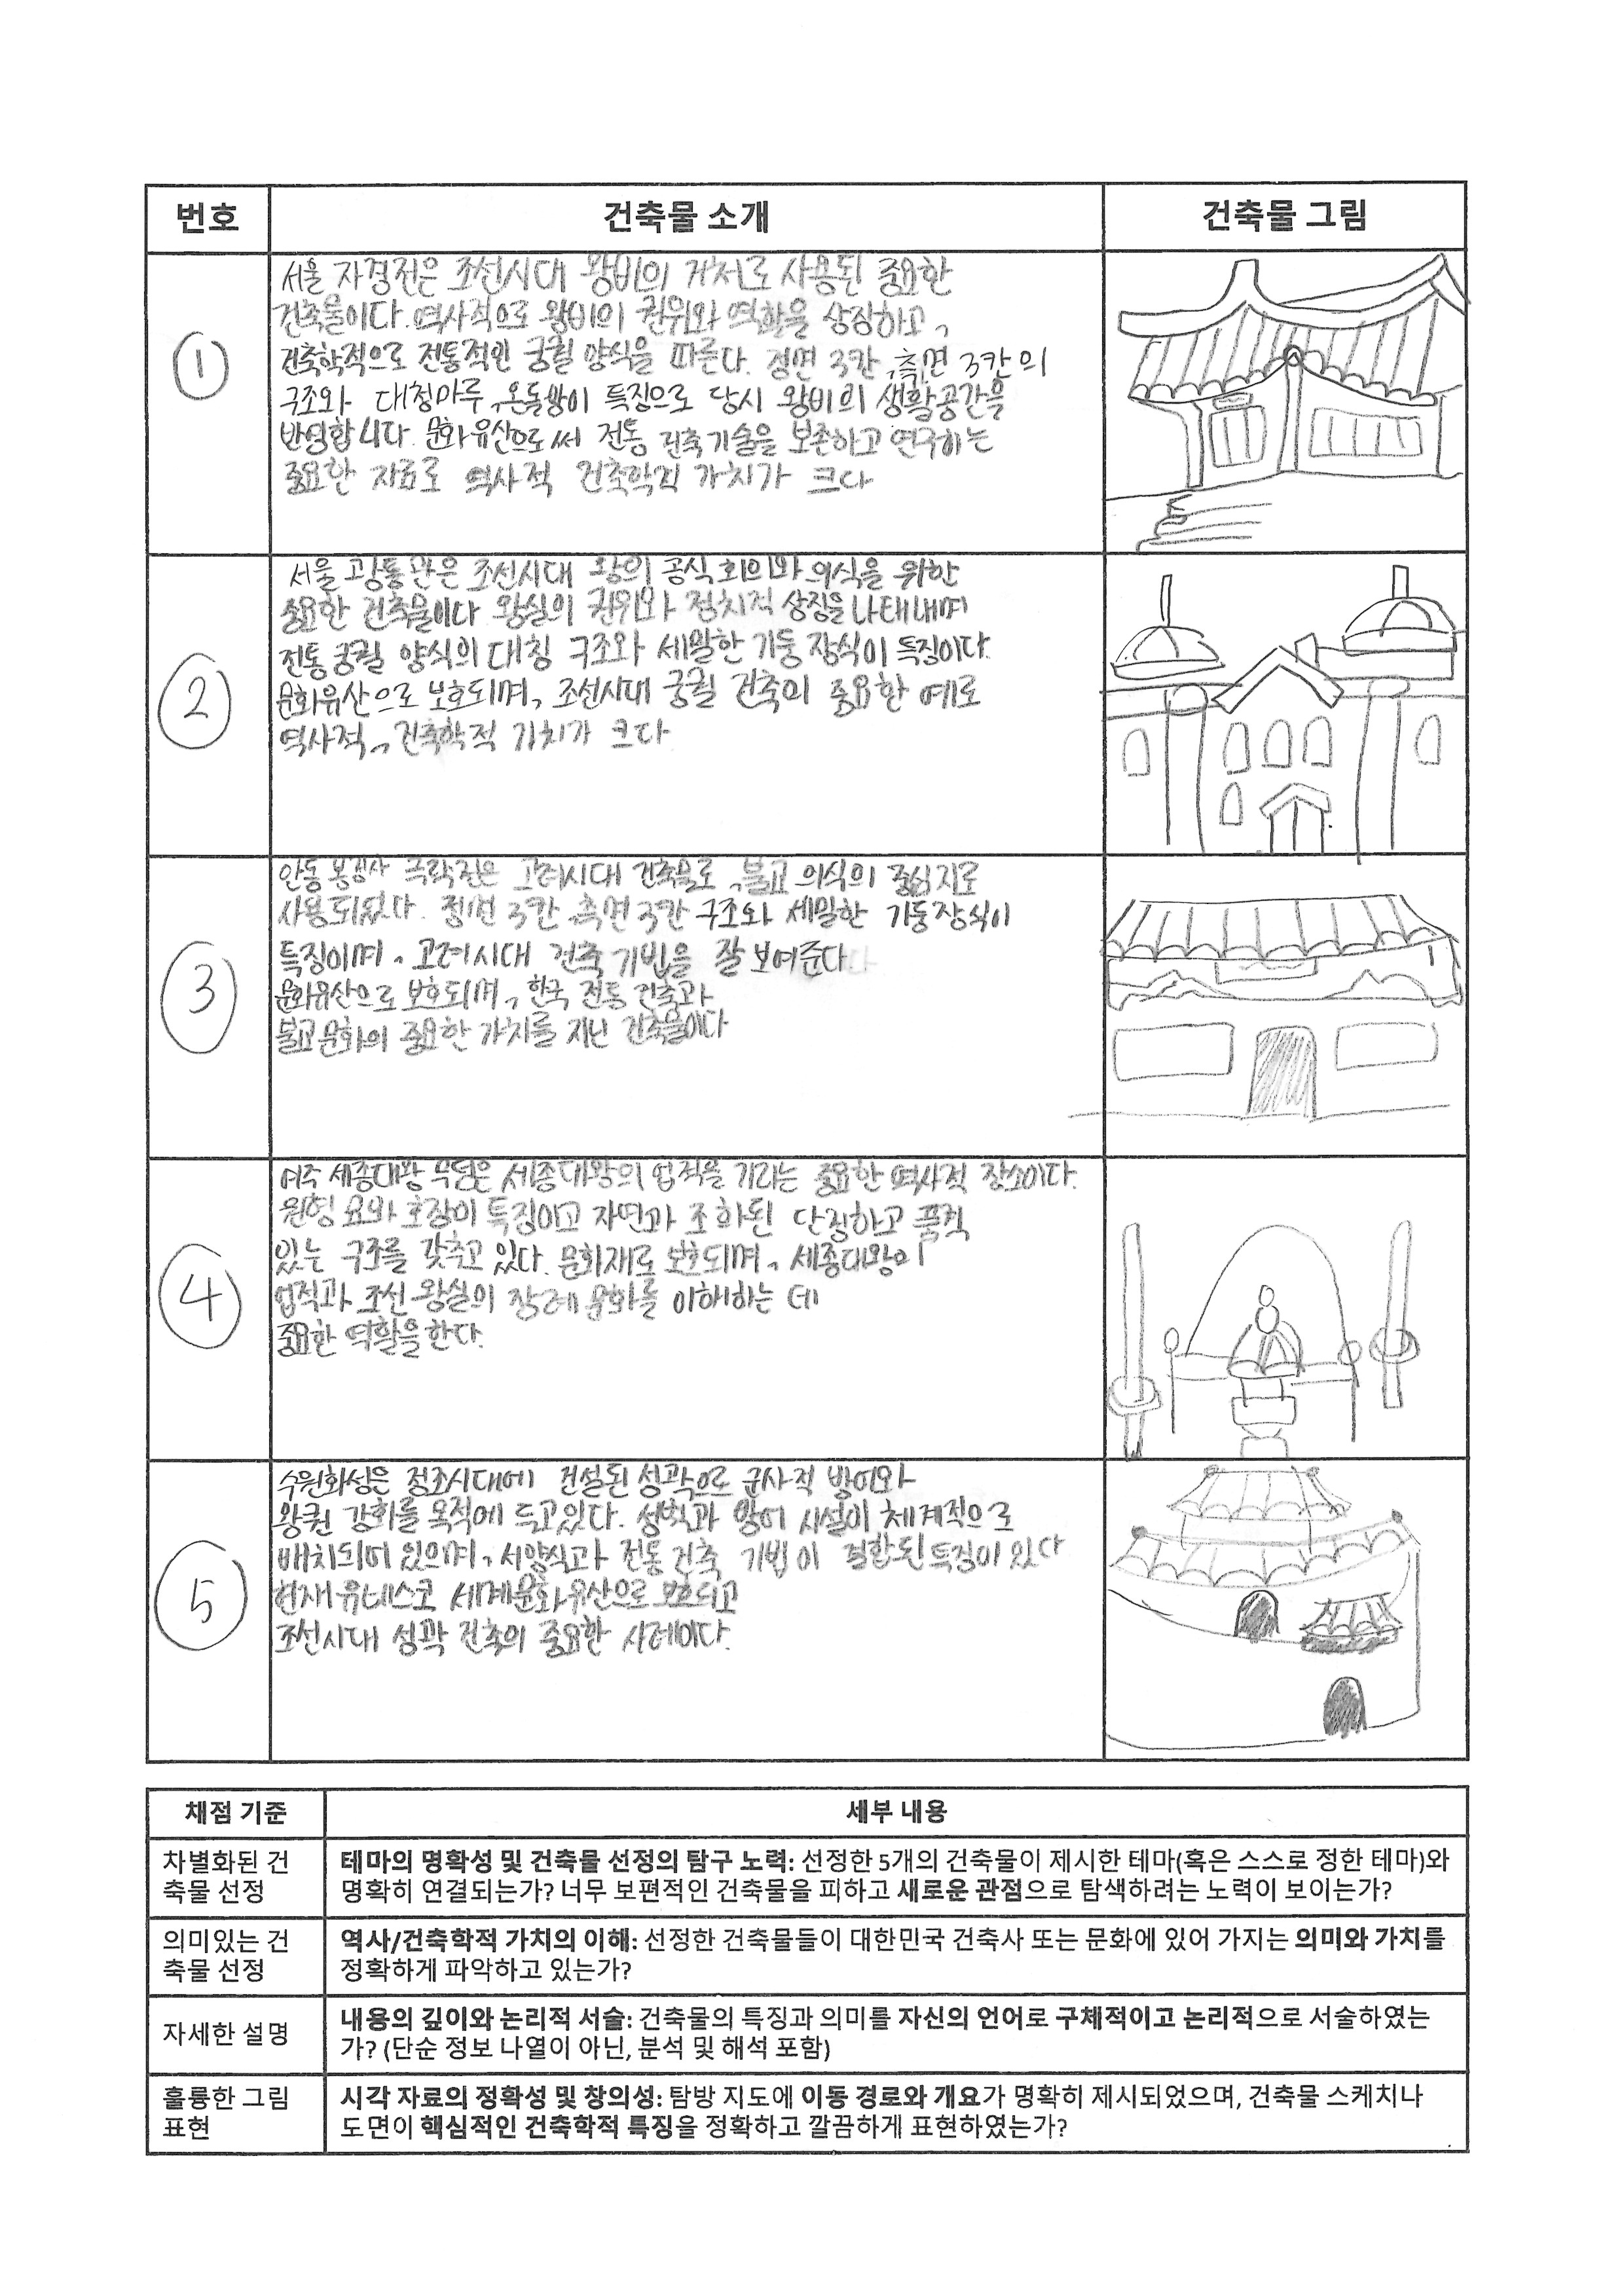 번호 건축물 소개 건축물 그림
①
서울 자경전은 조선시대 왕비의 거처로 사용된 중요한
건축물이다. 역사적으로 왕비의 권위와 역할을 상징하고,
건축학적으로 전통적인 궁궐 양식을 따른다. 정면 3칸, 측면 3칸의
구조와 대청마루, 온돌방이 특징으로 당시 왕비의 생활공간을
반영합니다. 문화유산으로써 전통 건축기술을 보존하고 연구하는
중요한 자료로 역사적 건축학적 가치가 크다
②
서울 광통관은 조선시대 왕의 공식 회의와 의식을 위한
중요한 건축물이다 왕실의 권위와 정치적 상징을 나태내며
전통 궁궐 양식의 대칭 구조와 세밀한 기둥 장식이 특징이다.
문화유산으로 보호되며, 조선시대 궁궐 건축의 중요한 예로
역사적, 건축학적 가치가 크다
③
안동 봉정사 극락전은 고려시대 건축물로, 불교 의식의 중심지로
사용되었다. 정면 3칸 측면 3칸 구조와 세밀한 기둥장식이
특징이며, 고려시대 건축 기법을 잘 보여준다
문화유산으로 보호되며, 한국 전통 건축과
불교문화의 중요한 가치를 지닌 건축물이다
④
여주 세종대왕 무덤은 세종대왕의 업적을 기리는 중요한 역사적 장소이다.
원형 묘와 호장이 특징이고 자연과 조화된 단정하고 품격
있는 구조를 갖추고 있다. 문화재로 보호되며, 세종대왕의
업적과 조선 왕실의 장례 문화를 이해하는 데
중요한 역할을 한다.
⑤
수원화성은 정조시대에 건설된 성곽으로 군사적 방어와
왕권 강화를 목적에 두고있다. 성벽과 방어 시설이 체계적으로
배치되어 있으며, 서양식과 전통 건축 기법이 결합된 특징이 있다
현재 유네스코 세계문화유산으로 보호되고
조선시대 성곽 건축의 중요한 사례이다.
채점 기준 세부 내용
차별화된 건
축물 선정
테마의 명확성 및 건축물 선정의 탐구 노력: 선정한 5개의 건축물이 제시한 테마(혹은 스스로 정한 테마)와
명확히 연결되는가? 너무 보편적인 건축물을 피하고 새로운 관점으로 탐색하려는 노력이 보이는가?
의미있는 건
축물 선정
역사/건축학적 가치의 이해: 선정한 건축물들이 대한민국 건축사 또는 문화에 있어 가지는 의미와 가치를
정확하게 파악하고 있는가?
자세한 설명
내용의 깊이와 논리적 서술: 건축물의 특징과 의미를 자신의 언어로 구체적이고 논리적으로 서술하였는
가? (단순 정보 나열이 아닌, 분석 및 해석 포함)
훌륭한 그림
표현
시각 자료의 정확성 및 창의성: 탐방 지도에 이동 경로와 개요가 명확히 제시되었으며, 건축물 스케치나
도면이 핵심적인 건축학적 특징을 정확하고 깔끔하게 표현하였는가?